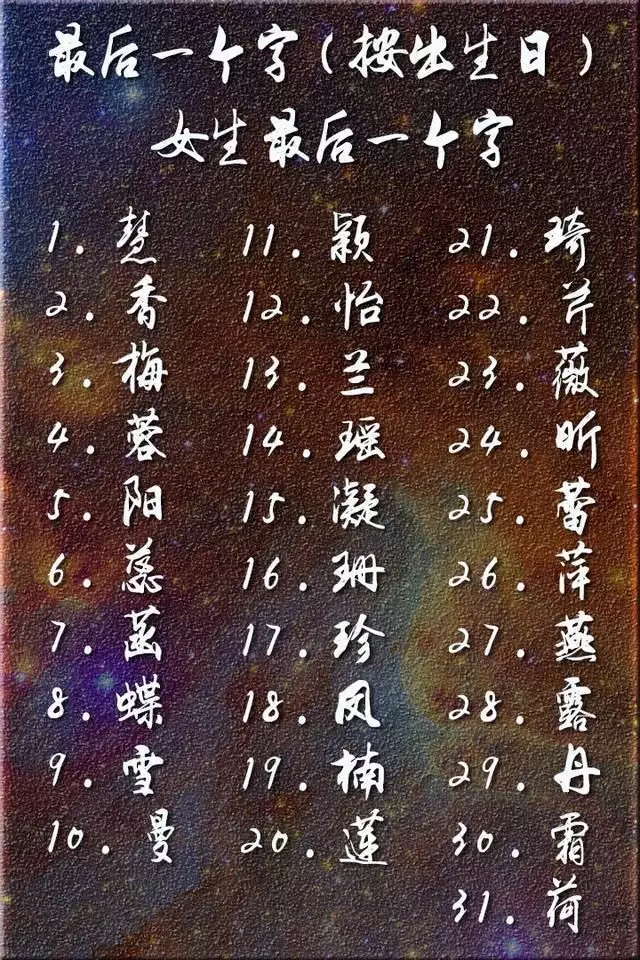 最后一个字(按出生日)
女生最后一个字
1. 慧
2. 香
3. 梅
4. 蓉
5. 阳
6. 蕊
7. 菡
8. 蝶
9. 雪
10. 曼
11. 颖
12. 怡
13. 兰
14. 瑶
15. 凝
16. 珊
17. 珍
18. 凤
19. 楠
20. 莲
21. 琦
22. 芹
23. 薇
24. 昕
25. 蕾
26. 萍
27. 燕
28. 露
29. 丹
30. 霜
31. 荷